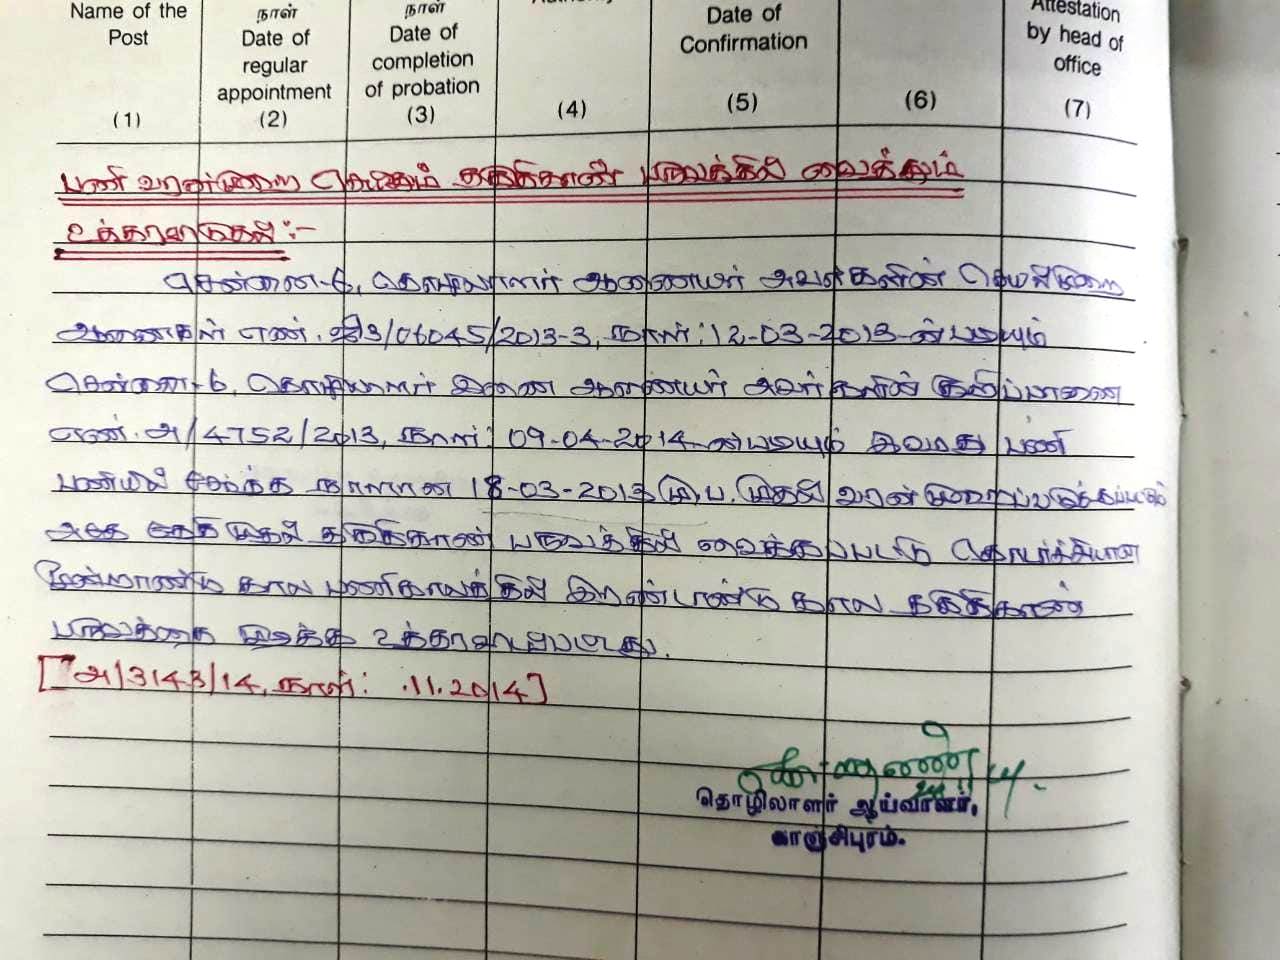 Name of the Post
நாள்
Date of regular appointment
நாள்
Date of completion of probation
Date of Confirmation
Attestation by head of office
(1) (2) (3) (4) (5) (6) (7)
பணி வரன்முறை செய்தும் தகுதிகாண் பருவத்தில் வைத்தும்
உத்தரவிடுதல் :-
சென்னை-6, தொழிலாளர் ஆணையர் அவர்களின் செயல்முறை
ஆணைகள் எண். 3/06045/2013-3, நாள்: 12-03-2013-ன்படியும்
சென்னை-6, தொழிலாளர் இணை ஆணையர் அவர்களின்
எண். அ/4752/2013, நாள்: 09-04-2014-ன்படியும் இவரது பணி
பணியில் சேர்ந்த நாளான 18-03-2013 மு.ப. முதல் வரன்முறைப்படுத்தப்பட்டும்
அதே முதல் தகுதிகாண் பருவத்தில் வைக்கப்பட்டு தொடர்ச்சியான
மூன்றாண்டு கால பணிகாலத்தில் இரண்டாண்டு கால தகுதிகாண்
பருவத்தை முடிக்க உத்தரவிடப்பட்டது.
[அ/3143/14, நாள்: .11.2014]
தொழிலாளர் ஆய்வாளர்,
காஞ்சிபுரம்.